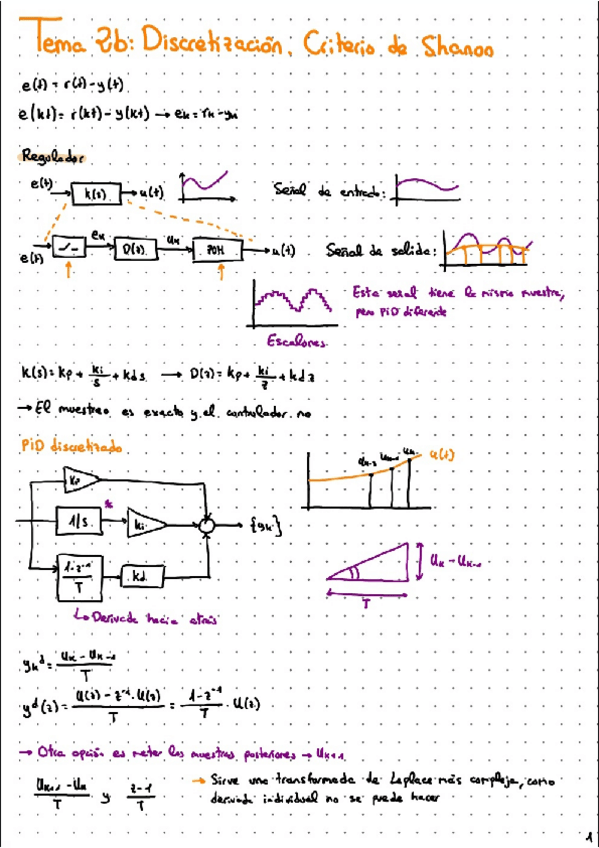 Tema 2b: Discretización. Criterio de Shanon
e(t) = r(t) - y(t)
e(kt) = r(kt) - y(kt) → ek = rk - yk
Regulador
e(t) k(s) u(t) Señal de entrada:
e(t) ek D(z) uk ZOH u(t) Señal de salida:
Esta señal tiene la misma muestra,
pero PiD diferente
Escalones
k(s) = kp + ki/s + kds → D(z) = kp + ki/z + kdz
→ El muestreo es exacto y el controlador no
PiD discretizado
kp
1/s ki {yk}
1-z⁻¹/T kd
↳ Derivada hacia atrás
uk-2 uk-1 uk u(t)
uk - uk-1
T
ykᵈ = uk - uk-1/T
yᵈ(z) = u(z) - z⁻¹·u(z)/T = 1-z⁻¹/T · u(z)
→ Otra opción es meter las muestras posteriores → uk+1
uk+1 - uk/T y z-1/T
→ Sirve una transformada de Laplace más compleja, como
derivada individual no se puede hacer
1